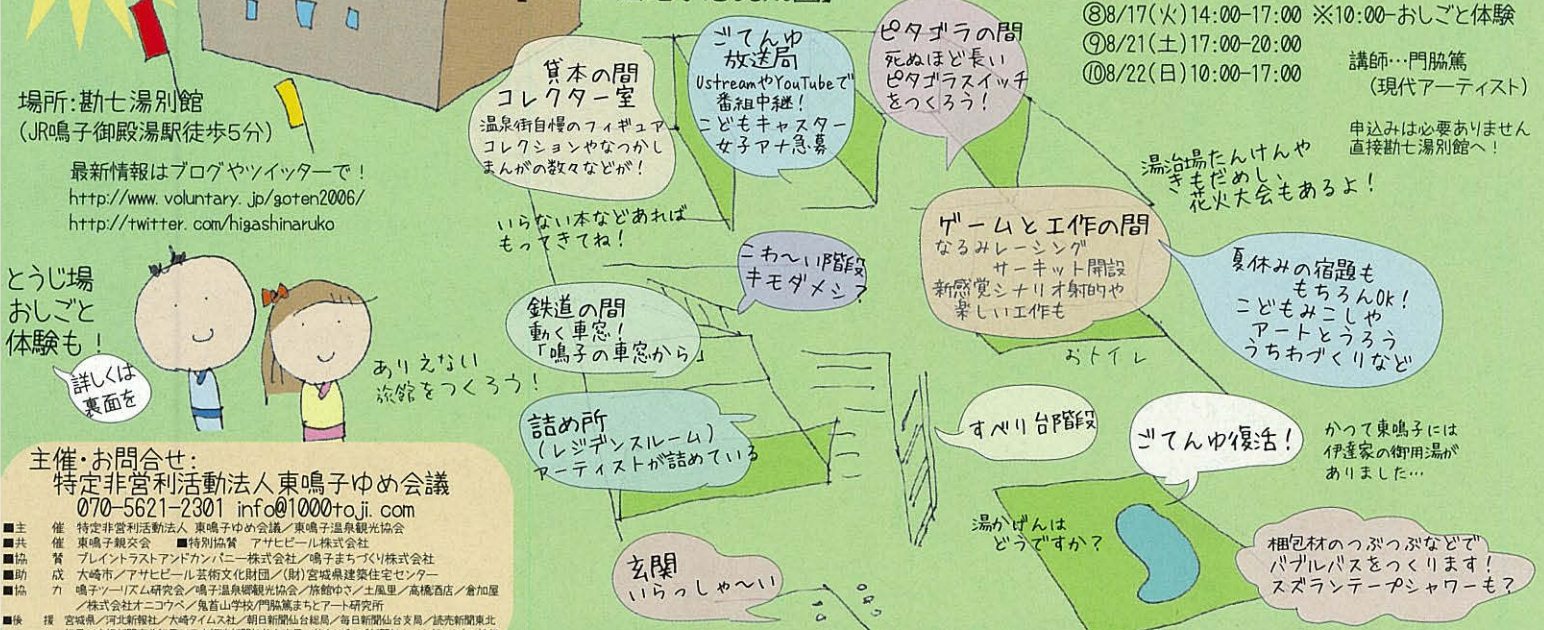 ⑧8/17(火)14:00-17:00 ※10:00-おしごと体験
⑨8/21(土)17:00-20:00
⑩8/22(日)10:00-17:00
講師…門脇篤
(現代アーティスト)
申込みは必要ありません
直接勘七湯別館へ！
場所:勘七湯別館
(JR鳴子御殿湯駅徒歩5分)
最新情報はブログやツイッターで！
http://www.voluntary.jp/goten2006/
http://twitter.com/higashinaruko
貸本の間
コレクター室
温泉街自慢のフィギュア
コレクションやなつかし
まんがの数々などが！
いらない本などあれば
もってきてね！
ごてんゆ
放送局
UstreamやYouTubeで
番組中継！
こどもキャスター
女子アナ急募
ピタゴラの間
死ぬほど長い
ピタゴラスイッチ
をつくろう！
湯治場たんけんや
きもだめし、
花火大会もあるよ！
ゲームと工作の間
なるみレーシング
サーキット開設
新感覚シナリオ射的や
楽しい工作も
夏休みの宿題も
もちろんOK！
こどもみこしや
アートとうろう
うちわづくりなど
こわ〜い階段
キモダメシ？
鉄道の間
動く車窓！
「鳴子の車窓から」
おトイレ
とうじ場
おしごと
体験も！
詳しくは
裏面を
ありえない
旅館をつくろう！
詰め所
(レジデンスルーム)
アーティストが詰めている
すべり台階段
ごてんゆ復活！
かつて東鳴子には
伊達家の御用湯が
ありました…
湯かげんは
どうですか？
梱包材のつぶつぶなどで
バブルバスをつくります！
スズランテープシャワーも？
玄関
いらっしゃ〜い
主催・お問合せ:
特定非営利活動法人東鳴子ゆめ会議
070-5621-2301 info@1000toji.com
■主　催 特定非営利活動法人 東鳴子ゆめ会議／東鳴子温泉観光協会
■共　催 東鳴子親交会 ■特別協賛 アサヒビール株式会社
■協　賛 ブレイントラストアンドカンパニー株式会社／鳴子まちづくり株式会社
■助　成 大崎市／アサヒビール芸術文化財団／(財)宮城県建築住宅センター
■協　力 鳴子ツーリズム研究会／鳴子温泉郷観光協会／旅館ゆさ／土風里／高橋酒店／倉加屋
／株式会社オニコウベ／鬼首山学校/門脇篤まちとアート研究所
■後　援 宮城県／河北新報社／大崎タイムス社／朝日新聞仙台総局／毎日新聞仙台支局／読売新聞東北